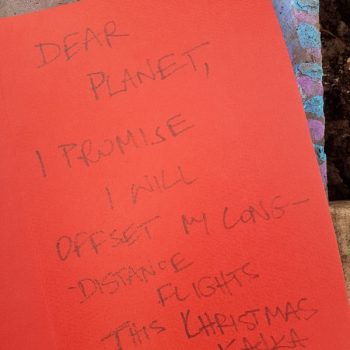 DEAR
PLANET,
I PROMISE
I WILL
OFFSET MY LONG-
-DISTANCE
FLIGHTS
THIS KHRISTMAS